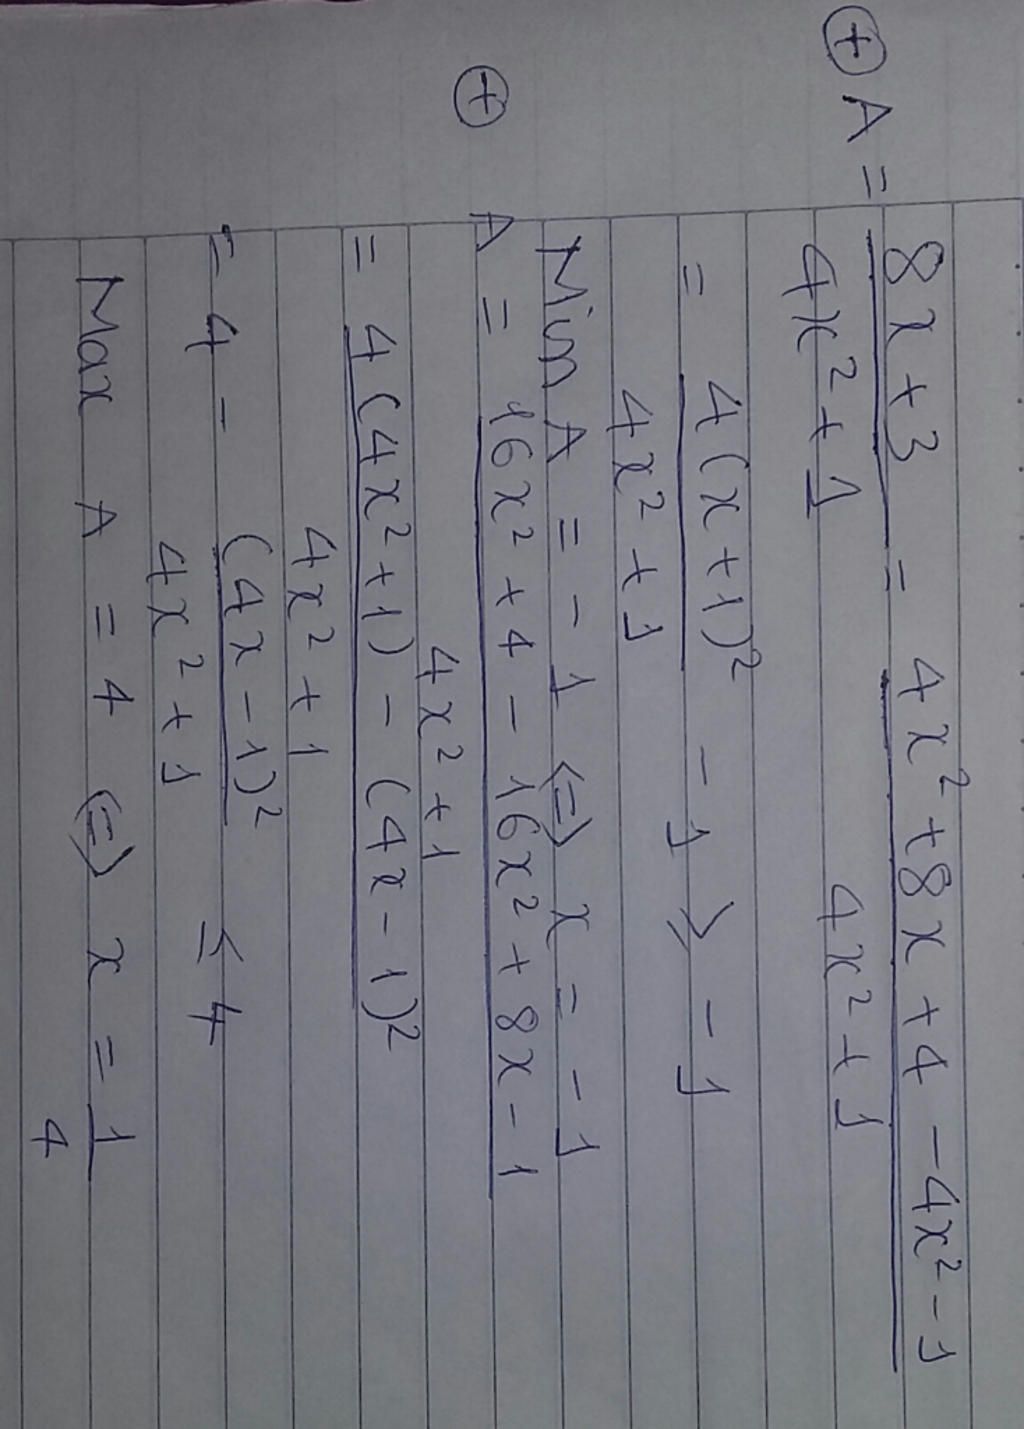 ⊕ A = 8x + 3 / 4x² + 1 = 4x² + 8x + 4 - 4x² - 1 / 4x² + 1
= 4(x + 1)² / 4x² + 1 - 1 ≥ - 1
Min A = - 1 (=) x = - 1
⊕ A = 16x² + 4 - 16x² + 8x - 1 / 4x² + 1
= 4(4x² + 1) - (4x - 1)² / 4x² + 1
= 4 - (4x - 1)² / 4x² + 1 ≤ 4
Max A = 4 (=) x = 1 / 4